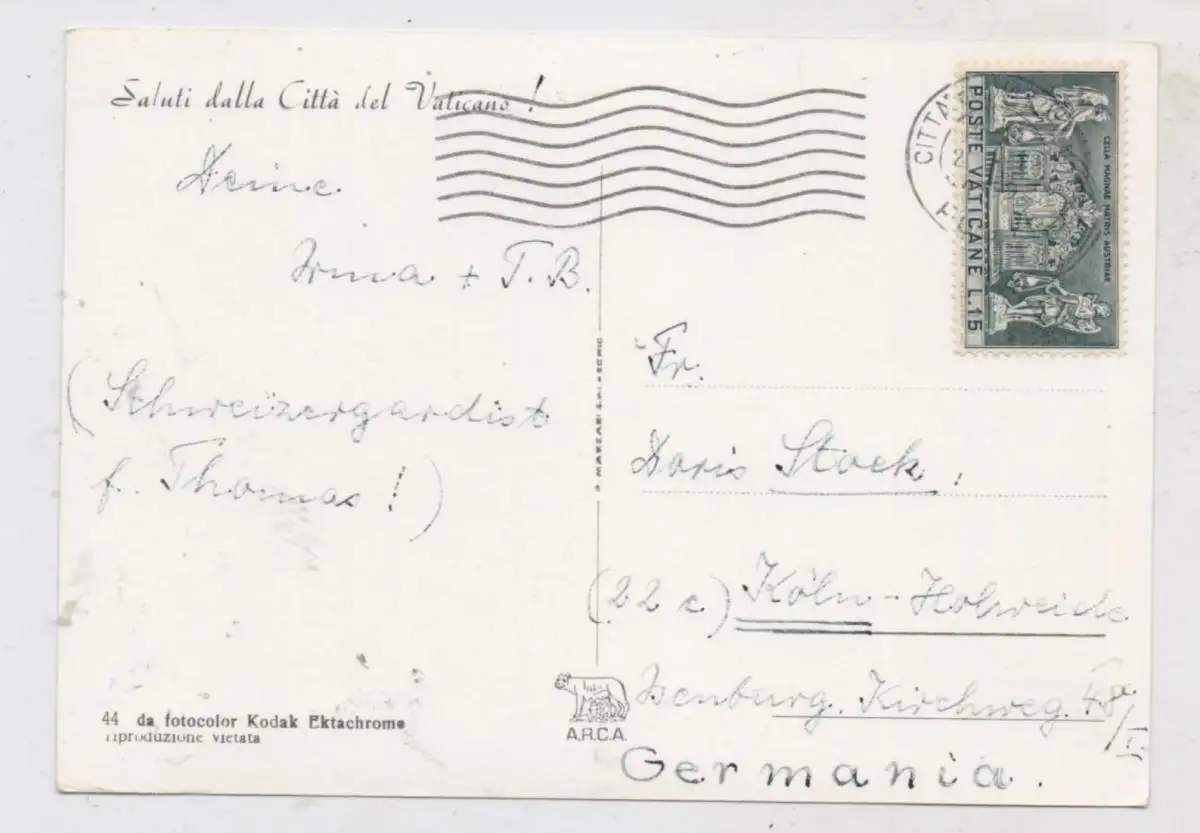 Saluti dalla Città del Vaticano !
Deine
Irma + T.B.
(Schweizergardist
f. Thomas!)
44 da fotocolor Kodak Ektachrome
riproduzione vietata
A.R.C.A.
CITTA
POSTE VATICANE L.15
CELLA MAGNAE MATRIS AUSTRIAE
Fr.
Doris Stock,
(22 c) Köln-Holweide
Isenburg. Kirchweg 48
Germania.